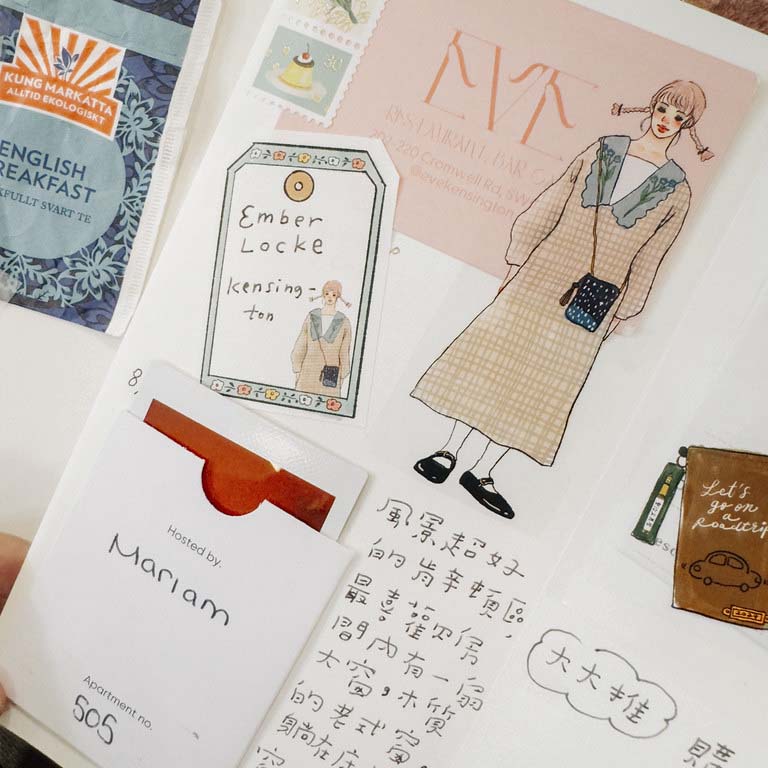 KUNG MARKATTA
ALLTID EKOLOGISKT
ENGLISH
BREAKFAST
KFULLT SVART TE
EVE
RESTAURANT, BAR
220 Cromwell Rd, SW
@evekensington
Ember
Locke
kensing-
ton
8,
Hosted by.
Mariam
Apartment no.
505
風景超好
的肯辛頓區,
最喜歡房
間內有一扇
大窗,木質
的老式窗,
躺在床
窗
大大推
購
Let's
go on
a
Roadtrip